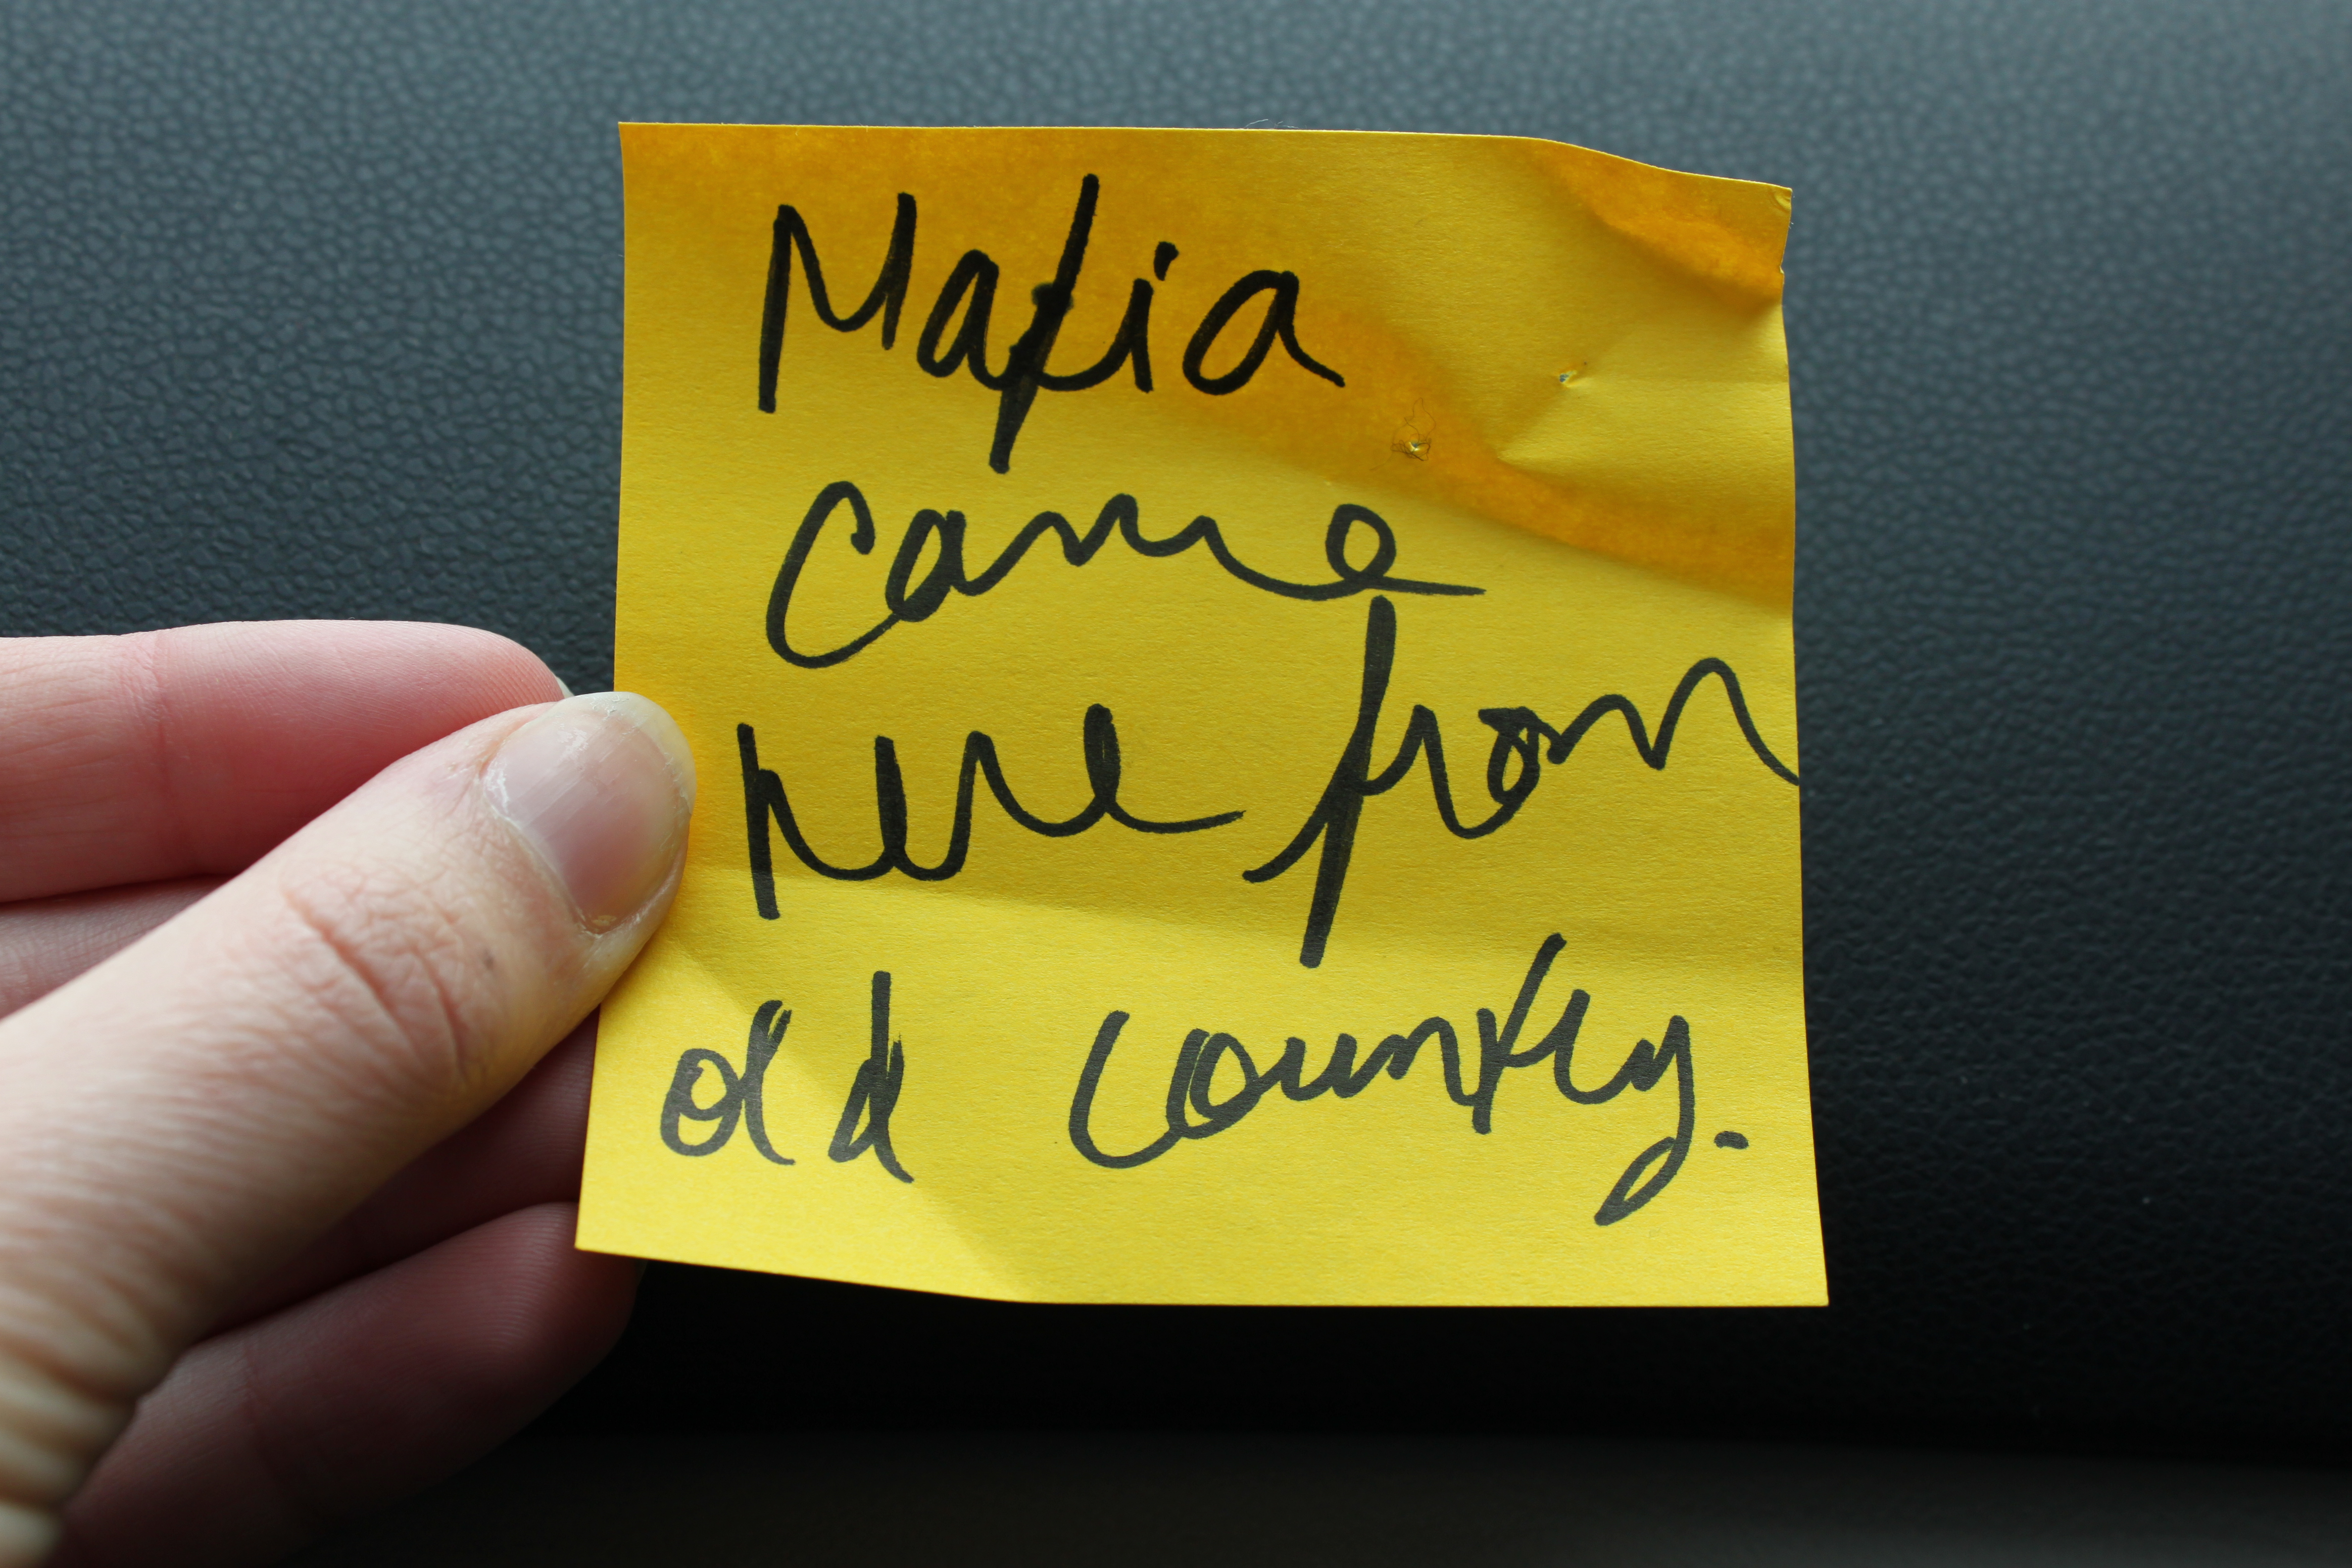 Mafia
came
here from
old country.